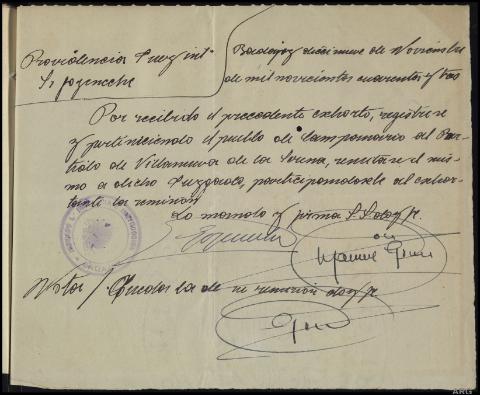 Providencia Juez int.º
Sr Goyeneche
Badajoz diecinueve de Noviembre
de mil novecientos cuarenta y tres
Por recibido el precedente exhorto, registrese
y perteneciendo el pueblo de Campanario al Par-
tido de Villanueva de la Serena, remitase el mis-
mo a dicho Juzgado, participandosele al exhor-
tante la remision
Lo mando y firma S.S. doy fe.
Nota / la de su remision doy fe